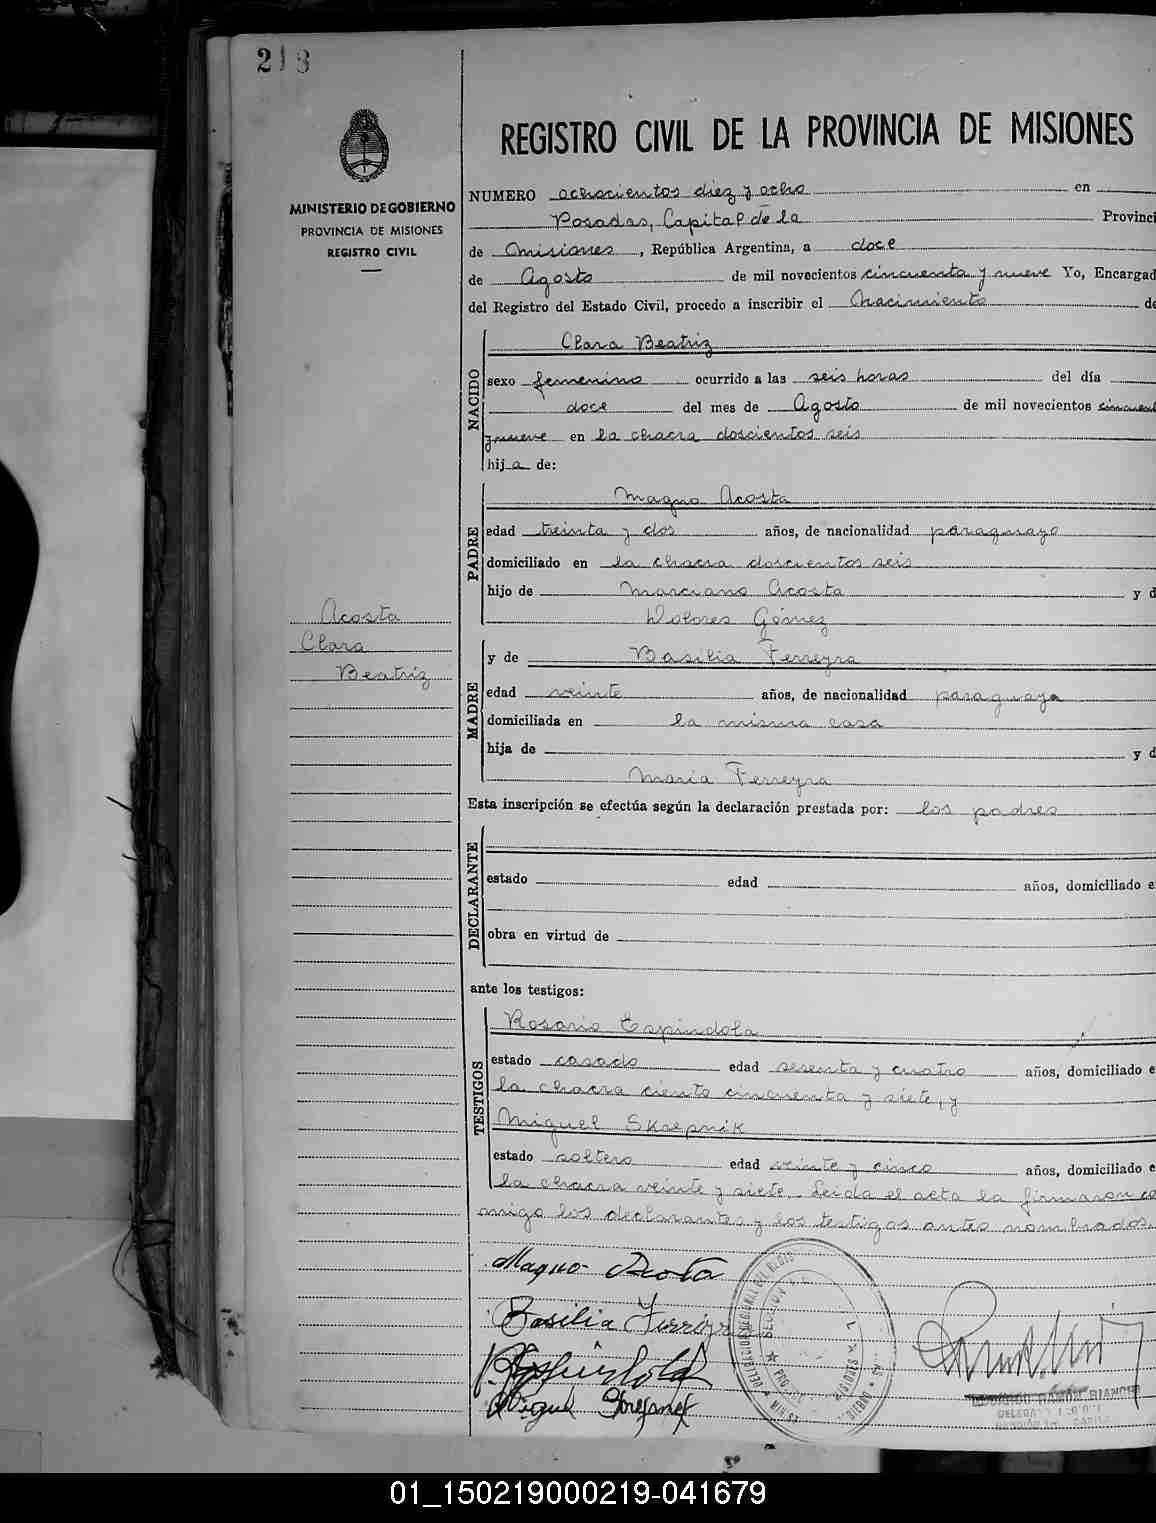 218
MINISTERIO DE GOBIERNO
PROVINCIA DE MISIONES
REGISTRO CIVIL
Acosta
Clara
Beatriz
REGISTRO CIVIL DE LA PROVINCIA DE MISIONES
NUMERO ochocientos diez y ocho en
Posadas, Capital de la Provinci
de Misiones, República Argentina, a doce
de Agosto de mil novecientos cincuenta y nueve Yo, Encargad
del Registro del Estado Civil, procedo a inscribir el Nacimiento de
NACIDO
Clara Beatriz
sexo femenino ocurrido a las seis horas del día
doce del mes de Agosto de mil novecientos cincuent
y nueve en la chacra doscientos seis
hija de:
PADRE
Magno Acosta
edad treinta y dos años, de nacionalidad paraguayo
domiciliado en la chacra doscientos seis
hijo de Marciano Acosta y d
Dolores Gómez
MADRE
y de Basilia Ferreyra
edad veinte años, de nacionalidad paraguaya
domiciliada en la misma casa
hija de y d
María Ferreyra
Esta inscripción se efectúa según la declaración prestada por: los padres
DECLARANTE
estado edad años, domiciliado e
obra en virtud de
ante los testigos:
TESTIGOS
Rosario Espindola
estado casado edad sesenta y cuatro años, domiciliado e
la chacra ciento cincuenta y siete, y
Miguel Skrepnik
estado soltero edad veinte y cinco años, domiciliado e
la chacra veinte y siete. Leida el acta la firmaron co
amigo los declarantes y los testigos antes nombrados.
Magno Acosta
Basilia Ferreyra
R. Espindola
Miguel Skrepnek
EDUARDO RAMON BIANCHI
01_150219000219-041679